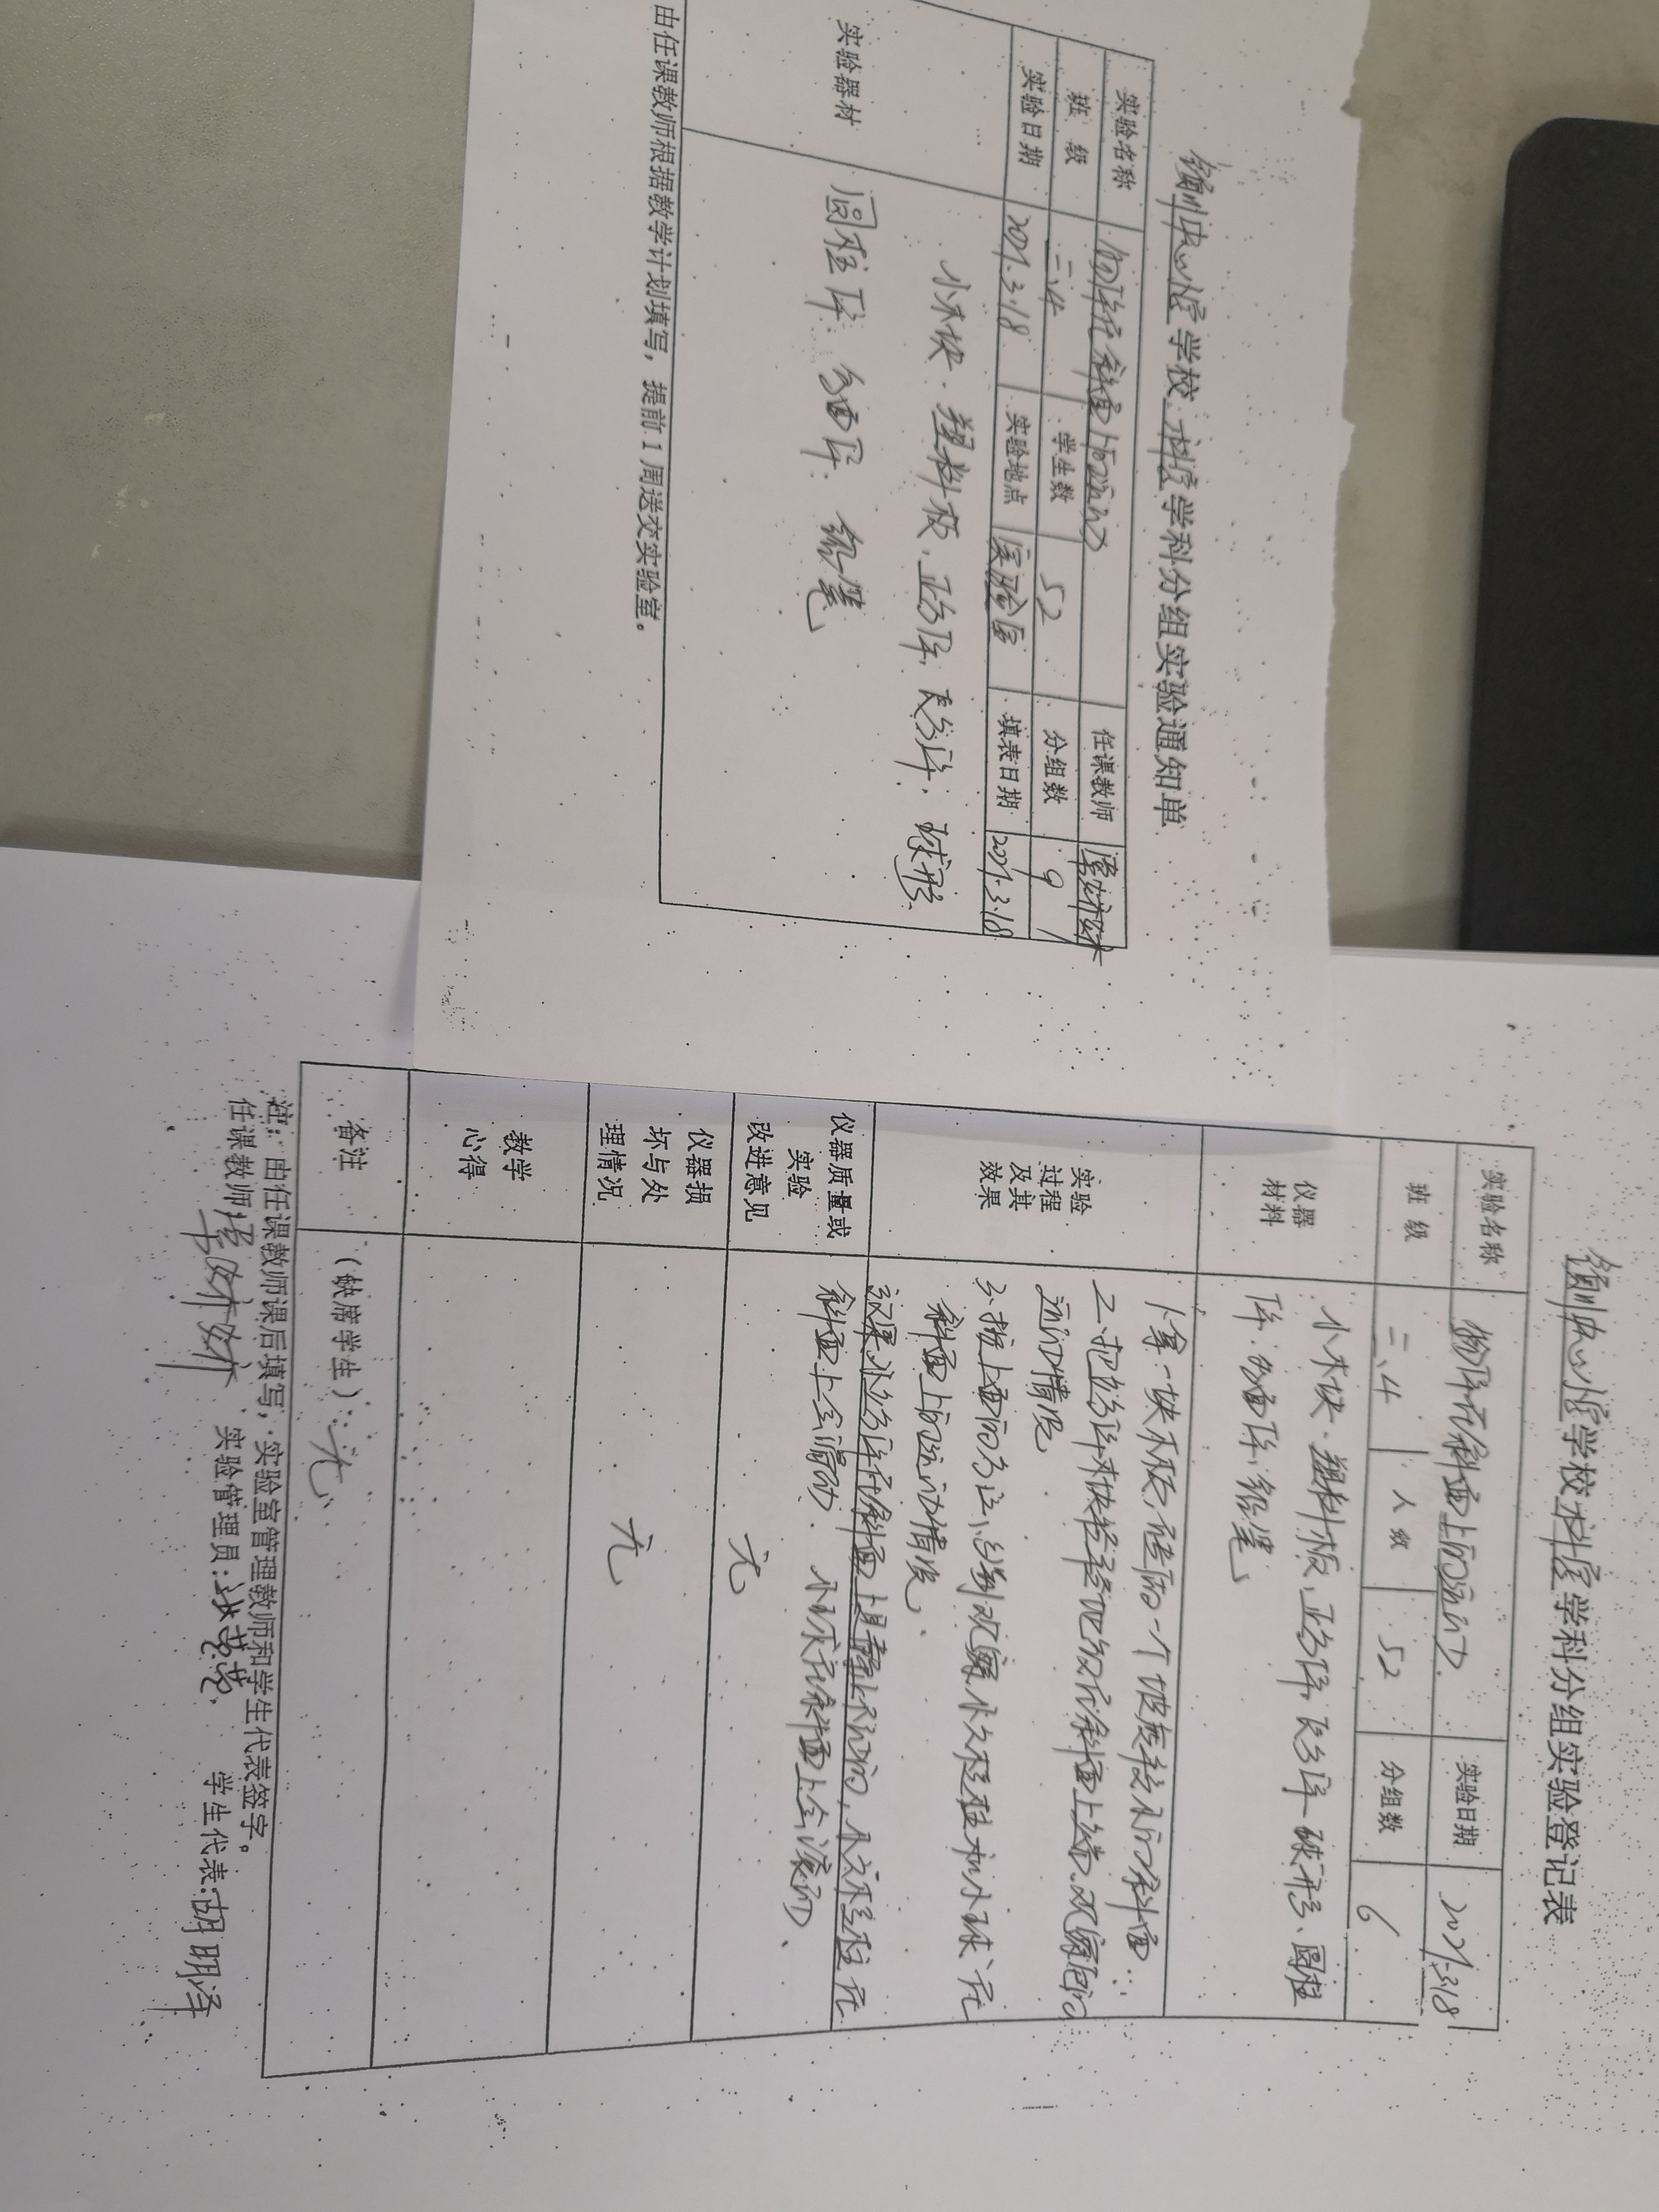 学校科学学科分组实验通知单
实验名称 物体在斜面上的运动 任课教师
班 级 二.4 学生数 52 分组数 9
实验日期 2021.3.18 实验地点 实验室 填表日期 2021.3.18
实验器材
小木块、塑料板、正方体、长方体、球形、
圆柱体、多面体、铅笔
由任课教师根据教学计划填写，提前1周送交实验室。
学校科学学科分组实验登记表
实验名称 物体在斜面上的运动 实验日期 2021.3.18
班 级 二.4 人 数 52 分组数 6
仪器
材料
小木块、塑料板、正方体、长方体、球形、圆柱
体、多面体、铅笔
实验
过程
及其
效果
1、拿一块木板，在
一个坡度较小的斜面
2、把
放在斜面上端，观察它的
运动情况
3、按上面的方法，分别观察小
柱和小球在
斜面上的运动情况。
效果：小
方体在斜面上是静止不动的，小
柱在
斜面上会滑动，小球在斜面上会滚动、
仪器质量或
实验
改进意见
无
仪器损
坏与处
理情况
无
教学
心得
备注
（缺席学生）：无
注：由任课教师课后填写，实验室管理教师和学生代表签字。
任课教师： 实验管理员： 学生代表：胡明泽